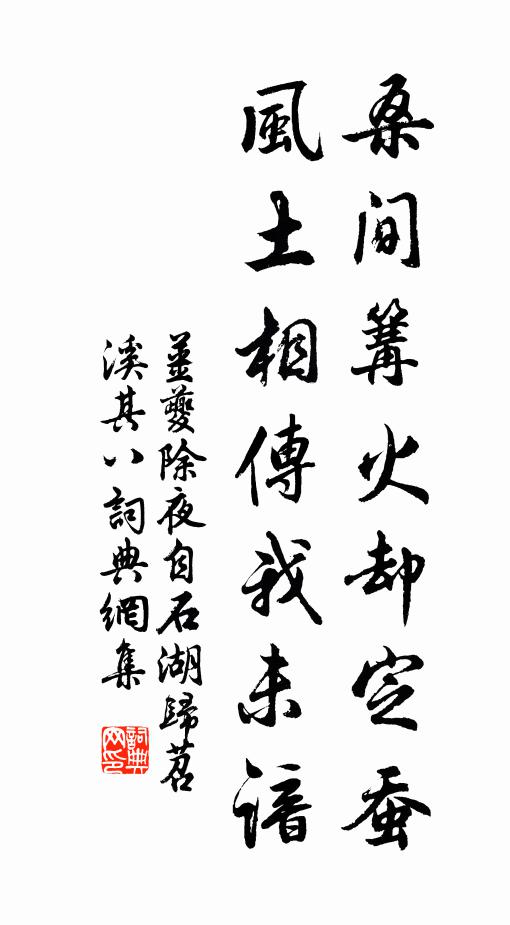 桑間篝火却宜蚕
風土相傳我未諳
姜夔除夜自石湖歸苕
溪其八詞典網集
詞典網印